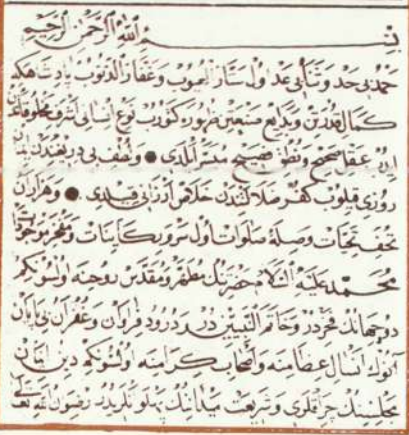 بسم الله الرحمن الرحيم
حمد بی حد و ثنای بی عد اول ستار العیوب و غفار الذنوب پادشاهکه
کمال قدرتن و بدایع صنعتن ظهوره کتورب نوع انسانی اشرف مخلوقاتدن
ایدوب عقل صحیح و نطق فصیح میسر ایلدی ● ولطف بی دریغندن ایمان
روزی قلوب کفر ضلالتندن خلاص ارزانی قیلدی ● وهزاران
تحف تحیات وصله صلوات اول سرور کاینات ومفخر موجودات
محمد علیه السلام حضرتنک مطهر ومقدس روحنه اولسونکم
دو جهانک فخریدر وخاتم النبییندر ودرود فراوان وغفران بی پایان
آنوک آل عظامنه واصحاب کرامنه اولسونکم دین ایمان
مجلسنک چراقلری وشریعت میدانینک پهلوانلریدر رضوان الله تعالی